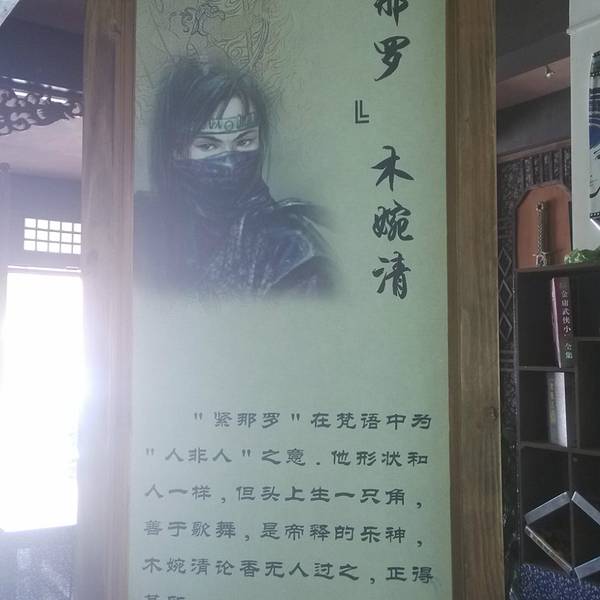 那罗
』
木婉清
"紧那罗"在梵语中为
"人非人"之意.他形状和
人一样,但头上生一只角,
善于歌舞,是帝释的乐神,
木婉清论香无人过之,正得
金庸武侠小
全集